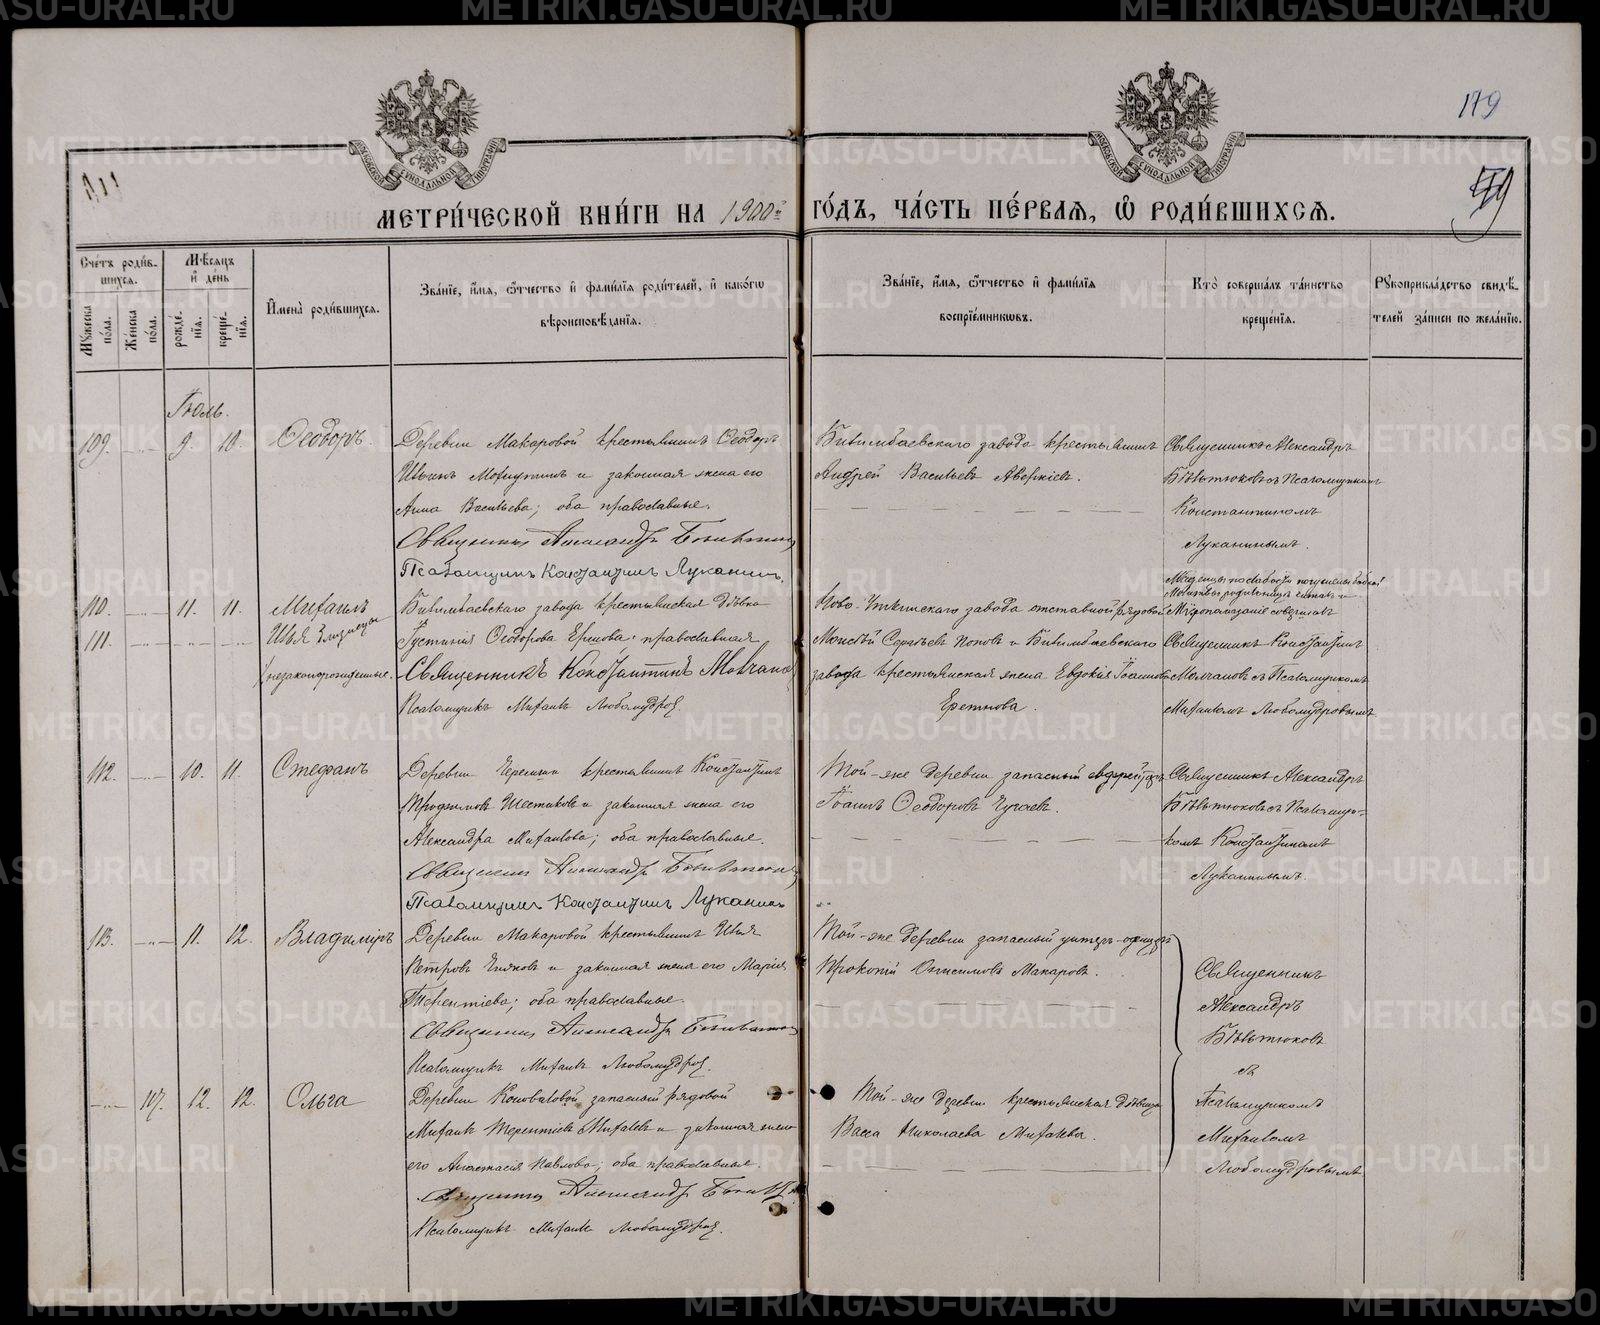 179
МЕТРИ́ЧЕСКОЙ КНИ́ГИ НА 1900й ГО́ДЪ, ЧА́СТЬ ПЕ́РВАѦ, Ѡ РОДИ́ВШИХСѦ.
Сче́тъ роди́вшихсѧ.
Мꙋ́жеска по́ла.
Же́нска по́ла.
Мѣ́сѧцъ и де́нь
рожде́нїѧ.
креще́нїѧ.
Имена̀ роди́вшихсѧ.
Зва́нїе, и́мѧ, ѻ́тчество и фами́лїѧ роди́телей, и како́гѡ вѣроисповѣ́данїѧ.
Зва́нїе, и́мѧ, ѻ́тчество и фами́лїѧ воспрїе́мникѡвъ.
Кто̀ соверша́лъ та́инство креще́нїѧ.
Рꙋкоприкла́дство свидѣ́телей за́писи по жела́нїю.
Іюль.
109. 9. 10. Ѳеодоръ.
Деревни Макаровой крестьянинъ Ѳеодоръ
и законная жена его
Анна Васильева; оба православные.
Священникъ Александръ
Псаломщикъ Константинъ Луканинъ.
Билимбаевскаго завода крестьянинъ
Андрей Васильевъ Аверкіевъ.
Священникъ Александръ
Бѣльтюковъ съ Псаломщикомъ
Константиномъ
Луканинымъ.
110. 11. 11. Михаилъ
111. Илья близнецы
незаконнорожденные.
Билимбаевскаго завода крестьянская дѣвка
Іустинія Ѳеодорова православная
Священникъ Константинъ Молчановъ
Псаломщикъ Михаилъ Любомудровъ.
Ново-Уткинскаго завода отставной рядовой
Моисѣй Сергѣевъ Поповъ и Билимбаевскаго
завода крестьянская жена Евдокія Іоаннова
Муропомазаніе совершалъ
Священникъ Константинъ
Молчановъ съ Псаломщикомъ
Михаиломъ Любомудровымъ.
112. 10. 11. Стефанъ
Деревни крестьянинъ Константинъ
Трофимовъ Шестаковъ и законная жена его
Александра Михаилова; оба православные.
Священникъ Александръ
Псаломщикъ Константинъ Луканинъ
Той-же деревни запасный
Іоаннъ Ѳеодоровъ Чугаевъ.
Священникъ Александръ
Бѣльтюковъ съ Псаломщи-
комъ Константиномъ
Луканинымъ.
113. 11. 12. Владиміръ
Деревни Макаровой крестьянинъ Илья
Петровъ и законная жена его Марія
Терентіева; оба православные.
Священникъ Александръ
Псаломщикъ Михаилъ Любомудровъ.
Той-же деревни запасный унтеръ-офицеръ
Прокопій Онисимовъ Макаровъ.
Священникъ
Александръ
Бѣльтюковъ
съ
Псаломщикомъ
Михаиломъ
Любомудровымъ.
107. 12. 12. Ольга
Деревни Коноваловой запасный рядовой
Михаилъ Терентіевъ Михалевъ и законная жена
его Анастасія Павлова; оба православные.
Священникъ Александръ
Псаломщикъ Михаилъ Любомудровъ.
Той-же деревни крестьянская дѣвица
Васса Николаева Михалева.
METRIKI.GASO-URAL.RU